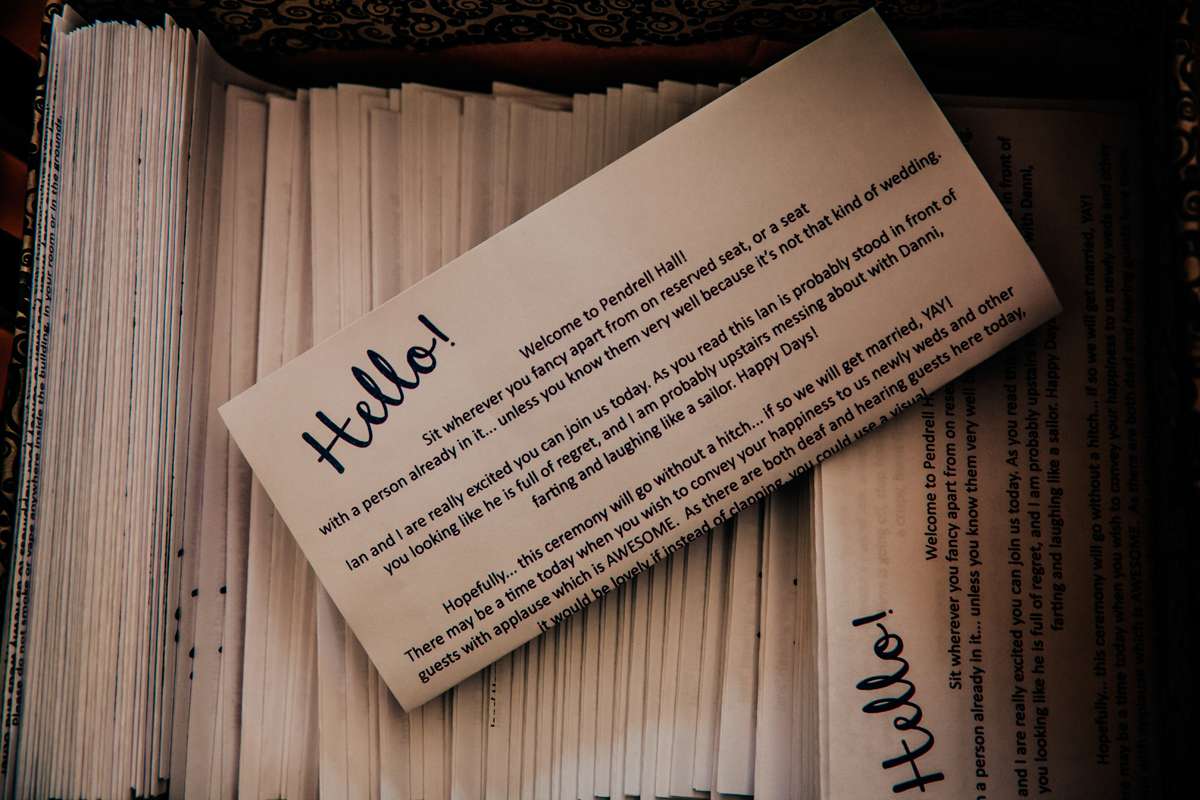 Hello!
Welcome to Pendrell Hall!
Sit wherever you fancy apart from on reserved seat, or a seat
with a person already in it... unless you know them very well because it's not that kind of wedding.
Ian and I are really excited you can join us today. As you read this Ian is probably stood in front of
you looking like he is full of regret, and I am probably upstairs messing about with Danni,
farting and laughing like a sailor. Happy Days!
Hopefully... this ceremony will go without a hitch...if so we will get married, YAY!
There may be a time today when you wish to convey your happiness to us newly weds and other
guests with applause which is AWESOME. As there are both deaf and hearing guests here today,
it would be lovely if instead of clapping, you could use a visual
Hello!
Welcome to Pendrell H
Sit wherever you fancy apart from on rese
a person already in it... unless you know them very well
and I are really excited you can join us today. As you read in front of
you looking like he is full of regret, and I am probably upstairs with Danni,
farting and laughing like a sailor. Happy Days
Hopefully... this ceremony will go without a hitch... if so we will get married, YAY!
may be a time today when you wish to convey your happiness to us newly weds and other
with applause which is AWESOME. As there are both deaf and hearing guests here
Please do not smoke or vape anywhere inside the building, in your room or in the grounds.